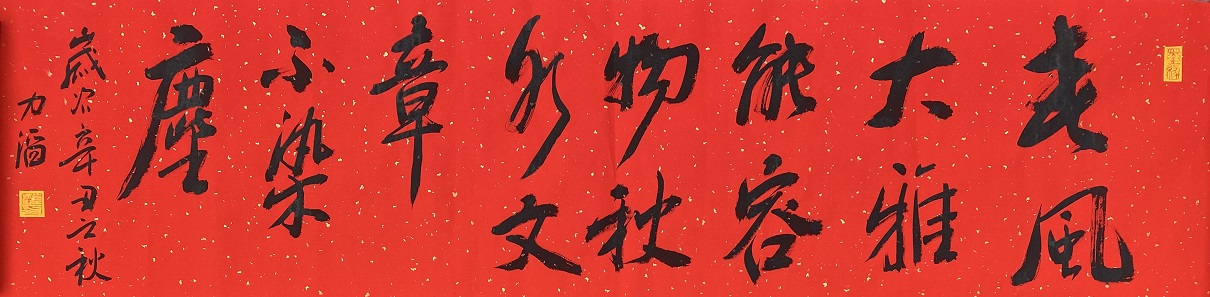 春風
大雅
能容
物秋
水文
章
不染
塵
歲次辛丑之秋
力